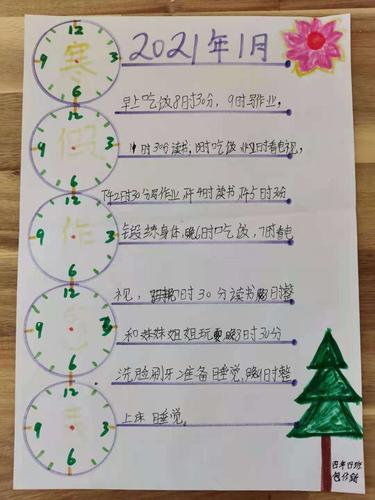 寒
2021年1月
12 3 6 9
早上吃饭8时30分,9时写作业,
假
12 3 6 9
11时30分读书,12时吃饭 1时看电视,
作
12 3 6 9
下午2时30分写作业 下午4时读书 下午5时30分
锻练身体,晚6时吃饭,7时看电
12 3 6 9
视,晚7时30分读书晚8时整
息
和妹妹姐姐玩耍晚8时30分
12 3 6 9
洗脸刷牙准备睡觉,晚9时整
表
上床 睡觉。
四年
班